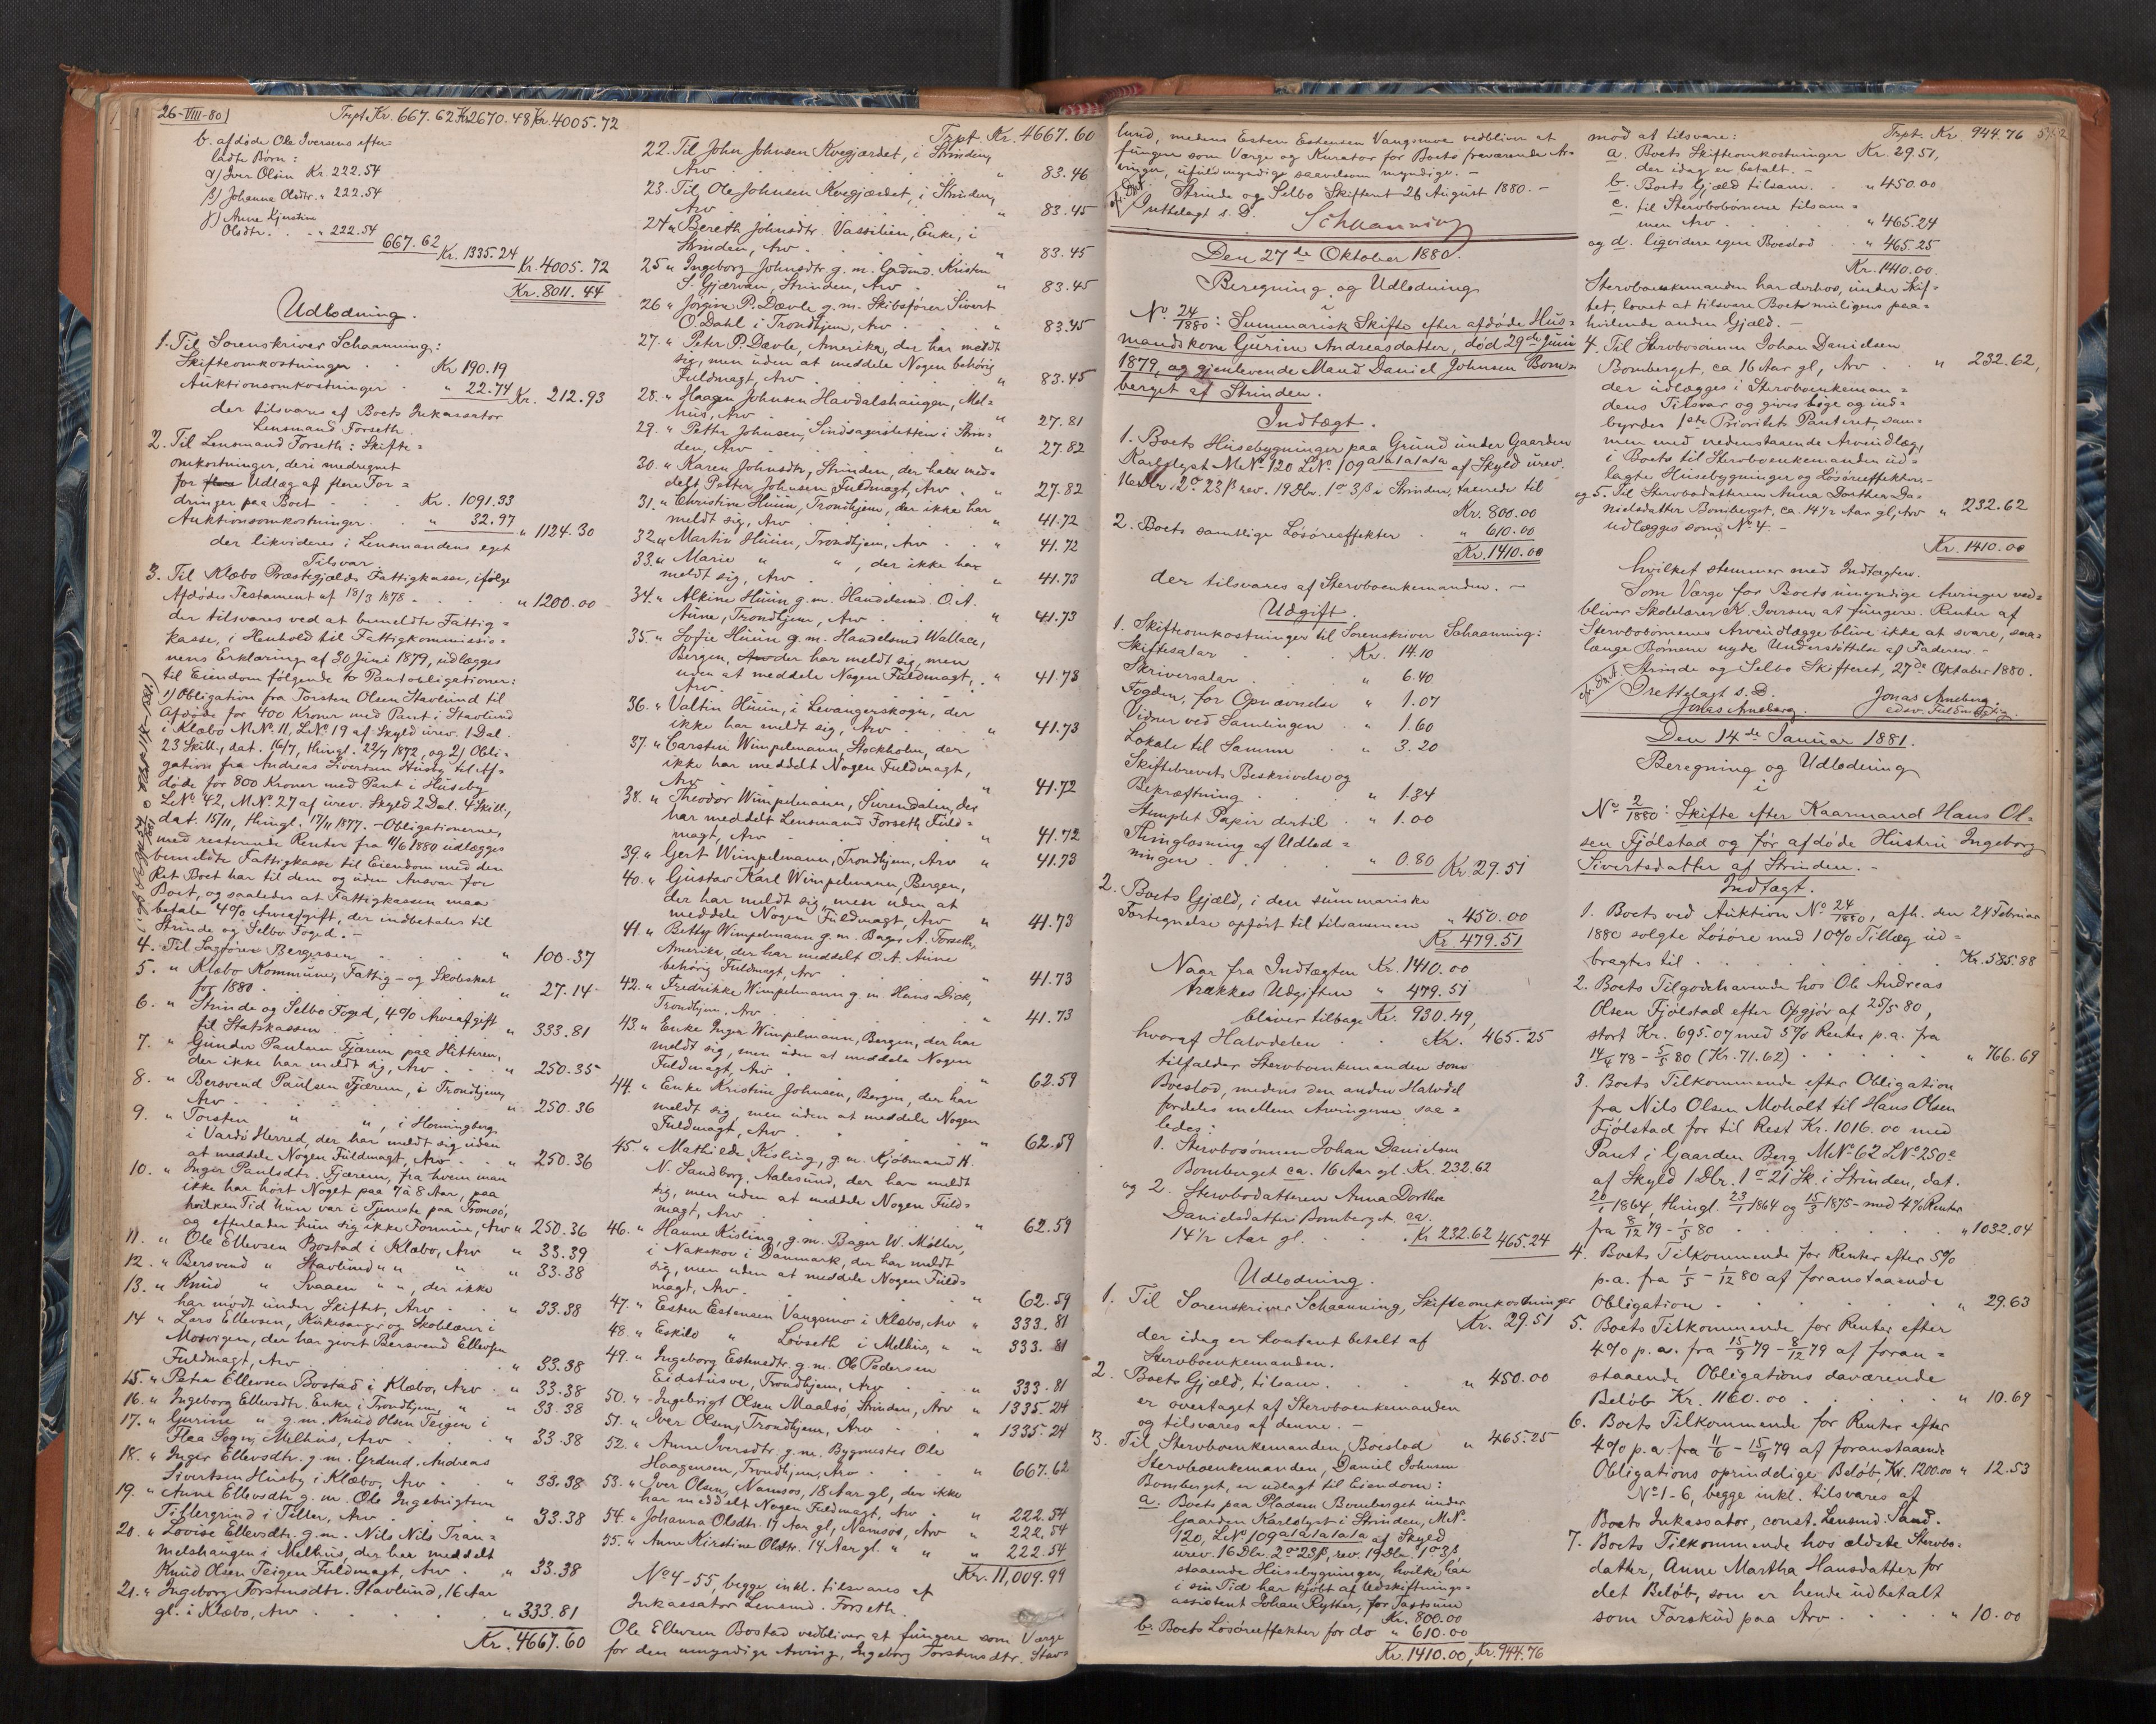 26-VIII-80)
Trpt. Kr. 667.62 Kr. 2670.48 Kr. 4005.72
b. afdøde Ole Iversens efter=
ladte Børn:
α) Iver Olsen Kr. 222.54
β) Johanna Olsdtr. " 222.54
γ) Anne Kjerstine
Olsdtr. . . " 222.54
667.62 Kr. 1335.24 Kr. 4005.72
Kr. 8011.44
Udlodning.
1. Til Sorenskriver Schaanning:
Skifteomkostninger . . Kr. 190.19
Auktionsomkostninger . " 22.74 Kr. 212.93
der tilsvares af Boets Inkassator
Lensmand Forseth.
2. Til Lensmand Forseth: Skifte=
omkostninger, deri medregnet
for Udlæg af flere For=
dringer paa Boet . . . Kr. 1091.33
Auktionsomkostninger . . " 32.97 " 1124.30
der likvideres i Lensmandens eget
Tilsvar.
3. Til Klæbo Præstegjælds Fattigkasse, ifølge
Afdødes Testament af 18/3 1878 . . " 1200.00
der tilsvares ved at bemeldte Fattig=
kasse, i Henhold til Fattigkommissio=
nens Erklæring af 30 Juni 1879, udlægges
til Eiendom følgende to Pantobligationer:
1) Obligation fra Torsten Olsen Stavlund til
Afdøde for 400 Kroner med Pant i Stavlund
i Klæbo M.No. 11, L.No. 19 af Skyld urev. 1 Dal.
23 Skill., dat. 16/7, thingl. 22/7 1872, og 2) Obli=
gation fra Andreas Sivertsen Huseby til Af=
døde for 800 Kroner med Pant i Huseby
L.No. 42, M.No. 27 af urev. Skyld 2 Dal. 4 Skill,
dat. 15/11, thingl. 17/11 1877. - Obligationerne,
med resterende Renter fra 11/6 1880 udlægges
bemeldte Fattigkasse til Eiendom med den
Ret Boet har til dem og uden Ansvar for
Boet, og saaledes at Fattigkassen maa
betale 4% Arveafgift, der indbetales til
Strinde og Selbo Foged. -
4. Til Sagfører Bergersen . . " 100.37
5. " Klæbo Kommune, Fattig- og Skoleskat
for 1880 . . " 27.14
6. " Strinde og Selbo Foged, 4% Arveafgift
til Statskassen . . " 333.81
7. " Gunder Paulsen Fjærem paa Hitteren,
der ikke har meldt sig, Arv . . " 250.35
8. " Bersvend Paulsen Fjærem, i Trondhjem,
Arv . . " 250.36
9. " Torsten " " , i Horningberg
i Vardö Herred, der har meldt sig uden
at meddele Nogen Fuldmagt, Arv . . " 250.36
10. " Inger Paulsdtr. Fjærem, fra hvem man
ikke har hørt Noget paa 7 à 8 Aar, paa
hvilken Tid hun var i Tjeneste paa Tromsø,
og efterlader hun sig ikke Formue, Arv " 250.36
11. " Ole Ellevsen Bostad i Klæbo, Arv " 33.39
12. " Bersvend " Stavlund " " " 33.38
13. " Knud " Svaaen " ", der ikke
har mødt under Skiftet, Arv . . " 33.38
14 " Lars Ellevsen, Kirkesanger og Skolelærer i
Mosvigen, der har givet Bersvend Ellevsen
Fuldmagt, Arv . . " 33.38
15. " Peter Ellevsen Bostad i Klæbo, Arv . " 33.38
16. " Ingeborg Ellevsdtr. Enke i Trondhjem, " " 33.38
17. " Gurine " g. m. Knud Olsen Teigen i
Flaa Sogn, Melhus, Arv . . " 33.38
18. " Inger Ellevsdtr. g. m. Grdmd. Andreas
Sivertsen Husby i Klæbo, Arv . . " 33.38
19. " Anne Ellevsdtr. g. m. Ole Ingebrigtsen
Tillergrind i Tiller, Arv . . " 33.38
20. " Lovise Ellevsdtr. g. m. Nils Nils Tran=
melshaugen i Melhus, der har meddelt
Knud Olsen Teigen Fuldmagt, Arv . " 33.38
21. " Ingeborg Torstensdtr. Stavlund, 16 Aar
gl. i Klæbo, Arv . . " 333.81
Kr. 4667.60
Trpt. Kr. 4667.60
22. Til John Johnsen Kvegjærdet, i Strinden,
Arv . . " 83.46
23. Til Ole Johnsen Kvegjærdet, i Strinden,
Arv . . " 83.45
24 " Bereth Johnsdtr. Vassilien, Enke, i
Strinden, Arv . . " 83.45
25 " Ingeborg Johnsdtr. g. m. Grdmd. Kristen
S. Gjærvan, Strinden, Arv . . " 83.45
26 " Jørgine P. Dævle g. m. Skibsfører Sivert
O. Dahl i Trondhjem, Arv . . " 83.45
27. " Peter P. Dævle, Amerika, der har meldt
sig, men uden at meddele Nogen behørig
Fuldmagt, Arv . . " 83.45
28. " Haagen Johnsen Havdalshaugen, Mel=
hus, Arv . . " 27.81
29. " Petter Johnsen, Sindsagerslettten i Strin=
den, Arv . . " 27.82
30. " Karen Johnsdtr, Strinden, der har med=
delt, Petter Johnsen Fuldmagt, Arv . " 27.82
31. " Christine Huun, Trondhjem, der ikke har
meldt sig, Arv . . " 41.72
32 " Martin Huun, Trondhjem, Arv . . " 41.72
33. " Marie " " , der ikke har
meldt sig, Arv . . " 41.73
34. " Alkine Huun g. m. Handelsmd. O. A.
Aune, Trondhjem, Arv . . " 41.73
35. " Sofie Huun g. m. Handelsmd Wallace,
Bergen, der har meldt sig, men
uden at meddele Nogen Fuldmagt, . " 41.73
Arv.
36. " Valtin Huun, i Levangerskogn, der
ikke har meldt sig, Arv . . " 41.73
37. " Carsten Wimpelmann, Stockholm, der
ikke har meddelt Nogen Fuldmagt,
Arv . . " 41.72
38. " Theodor Wimpelmann, Surendalen, der
har meddelt Lensmand Forseth Fuld=
magt, Arv . . " 41.72
39. " Gert Wimpelmann, Trondhjem, Arv " 41.73
40. " Gustav Karl Wimpelmann, Bergen,
der har meldt sig, men uden at
meddele Nogen Fuldmagt, Arv " 41.73
41. " Betty Wimpelmann g. m. Bager A. Forseth,
Amerika, der har meddelt O. A. Aune
behørig Fuldmagt, Arv . . " 41.73
42. " Fredrikke Wimpelmann g. m. Hans Dick,
Trondhjem, Arv . . " 41.73
43. " Enke Inger Wimpelmann, Bergen, der har
meldt sig, men uden at meddele Nogen
Fuldmagt, Arv . . " 62.59
44. " Enke Kristine Johnsen, Bergen, der har
meldt sig, men uden at meddele Nogen
Fuldmagt, Arv . . " 62.59
45. " Mathilde Kisling, g. m. Kjøbmand H.
N. Sandborg, Aalesund, der har meldt
sig, men uden at meddele Nogen Fuld=
magt, Arv . . " 62.59
46. " Hanne Kisling, g. m. Bager W. Møller,
i Nakskov i Danmark, der har meldt
sig, men uden at meddele Nogen Fuld=
magt, Arv . . " 62.59
47. " Esten Estensen Vangsmo i Klæbo, Arv " 333.81
48. " Eskild " Løvseth i Melhus, " " 333.81
49. " Ingeborg Estensdtr. g. m. Ole Pedersen
Eidstusve, Trondhjem, Arv . . " 333.81
50. " Ingebrigt Olsen Maalsø, Strinden, Arv " 1335.24
51. " Iver Olsen, Trondhjem, Arv . . " 1335.24
52. " Anne Iversdtr. g. m. Bygmester Ole
Haagensen, Trondhjem, Arv . . " 667.62
53. " Iver Olsen, Namsos, 18 Aar gl, der ikke
har meddelt Nogen Fuldmagt, Arv . " 222.54
54. " Johanna Olsdtr. 17 Aar gl, Namsos, Arv " 222.54
55. " Anne Kirstine Olsdtr. 14 Aar gl. " " " 222.54
Kr. 11,009.99
No 4-55, begge inkl. tilsvares af
Inkassator Lensmd. Forseth.
Ole Ellevsen Bostad vedbliver at fungere som Værge
for den umyndige Arving, Ingeborg Torstensdtr. Stav=
lund, medens Esten Estensen Vangsmoe vedbliver at
fungere som Værge og Kurator for Boets fraværende Ar=
vinger, ufuldmyndige saavelsom myndige. -
Strinde og Selbo Skifteret 26 August 1880. -
Dat.
Fremlagt s. D.
Schaanning
Den 27de Oktober 1880.
Beregning og Udlodning
i
No. 24/1880: Summarisk Skifte efter afdøde Hus=
mandskone Gurine Andreasdatter, død 29de Juni
1879, og gjenlevende Mand Daniel Johnsen Bom=
berget af Strinden.
Indtægt.
1. Boets Husebygninger paa Grund under Gaarden
Karlslyst M.No. 120 L.No. 109 a/a/a/a/a af Skyld urev.
16 Dlr. 2 o 23 β rev. 19 Dlr. 1 o 3 β i Strinden, taxerede til
Kr. 800.00
2. Boets samtlige Løsøreeffekter . " 610.00
Kr. 1410.00
der tilsvares af Stervboenkemanden. -
Udgift.
1. Skifteomkostninger til Sorenskriver Schaanning:
Skiftesalar . . Kr. 14.10
Skriversalar . . " 6.40
Fogden, for Opnævnelse " 1.07
Vidner ved Samlingen . " 1.60
Lokale til Samme . " 3.20
Skiftebrevets Beskrivelse og
Bekræftning . . " 1.34
Stemplet Papir dertil . " 1.00
Thinglæsning af Udlod=
ningen . . " 0.80 Kr. 29.51
2. Boets Gjæld, i den summariske
Fortegnelse opført til tilsammen " 450.00
Kr. 479.51
Naar fra Indtægten Kr. 1410.00
trækkes Udgiften " 479.51
bliver tilbage Kr. 930.49,
hvoraf Halvdelen . . Kr. 465.25
tilfalder Stervboenkemanden som
Boeslod, medens den anden Halvdel
fordeles mellem Arvingerne saa=
ledes:
1. Stervbosønnen Johan Danielsen
Bomberget ca. 16 Aar gl. Kr. 232.62
og 2. Stervbodatteren Anna Dorthea
Danielsdatter Bomberget ca.
14½ Aar gl. . . Kr. 232.62 465.24
Udlodning.
1. Til Sorenskriver Schaanning, Skifteomkostninger
Kr. 29.51
der idag er kontant betalt af
Stervboenkemanden.
2. Boets Gjæld, tilsam. . . " 450.00
er overtaget af Stervboenkemanden
og tilsvares af denne. -
3. Til Stervboenkemanden, Boeslod " 465.25
Stervboenkemanden, Daniel Johnsen
Bomberget, er udlagt til Eiendom:
a. Boets paa Pladsen Bomberget under
Gaarden Karlslyst i Strinden, M.No.
120, L.No. 109 a/a/a/a/a af Skyld
urev. 16 Dlr. 2 o 23 β, rev. 19 Dlr. 1 o 3 β
staaende Husebygninger, hvilke han
i sin Tid har kjøbt af Udskiftnings=
assistent Johan Rytter, for Taxtsum
Kr. 800.00
b. Boets Løsøreeffekter for do " 610.00
Kr. 1410.00, Kr. 944.76
Trpt. Kr. 944.76
mod at tilsvare:
a. Boets Skifteomkostninger Kr. 29.51,
der idag er betalt. -
b. Boets Gjæld tilsam. . " 450.00
c. til Stervbobørnene tilsam=
men Arv . . " 465.24
og d. likvidere egen Boeslod . . " 465.25
Kr. 1410.00.
Stervboenkemanden har derhos, under Skif=
tet, lovet at tilsvare Boets muligens paa=
hvilende anden Gjæld. -
4. Til Stervbosønnen Johan Danielsen
Bomberget, ca 16 Aar gl, Arv . " 232.62,
der udlægges i Stervboenkeman=
dens Tilsvar og gives lige og ind=
byrdes 1ste Prioritets Panteret, sam=
men med nedenstaaende Arveudlæg,
i Boets til Stervboenkemanden ud=
lagte Husebygninger og Løsøreeffekter. -
og 5. Til Stervbodatteren Anna Dorthea Da=
nielsdatter Bomberget, ca. 14½ Aar gl, Arv " 232.62
udlægges som No. 4. -
Kr. 1410.00
hvilket stemmer med Indtægten.
Som Værge for Boets umyndige Arvinger ved=
bliver Skolelærer K. Iversen at fungere. Renter af
Stervbobørnenes Arveudlægge blive ikke at svare, saa=
længe Børnene nyde Understøttelse af Faderen. -
Strinde og Selbo Skifteret, 27de Oktober 1880.
Dat.
Fremlagt s. D.
Jonas Arneberg
Jonas Arneberg
edsv. Fuldmægtig.
Den 14de Januar 1881.
Beregning og Udlodning
i
No 2/1880: Skifte efter Kaarmand Hans Ol=
sen Fjølstad og før afdøde Hustru Ingeborg
Sivertsdatter af Strinden. -
Indtægt.
1. Boets ved Auktion No. 24/1880, afh. den 24 Februar
1880 solgte Løsøre med 10% Tillæg ud=
bragtes til . . Kr. 585.88
2. Boets Tilgodehavende hos Ole Andreas
Olsen Fjølstad efter Opgjør af 25/5 80,
stort Kr. 695.07 med 5% Renter p. a. fra
14/4 78 - 5/5 80 (Kr. 71.62) . . " 766.69
3. Boets Tilkommende efter Obligation
fra Nils Olsen Moholt til Hans Olsen
Fjølstad for til Rest Kr. 1016.00 med
Pant i Gaarden Berg M.No. 62 L.No. 250 a
af Skyld 1 Dlr. 1 o 21 Sk. i Strinden, dat.
20/1 1864, thingl. 23/1 1864 og 15/3 1875 - med 4% Renter
fra 8/12 79 - 1/5 80 . . " 1032.04
4. Boets Tilkommende for Renter efter 5%
p. a. fra 1/5 - 1/12 80 af foranstaaende
Obligation . . " 29.63
5. Boets Tilkommende for Renter efter
4% p. a. fra 15/9 79 - 8/12 79 af foran=
staaende Obligations daværende
Beløb Kr. 1160.00 . . " 10.69
6. Boets Tilkommende for Renter efter
4% p. a. fra 11/6 - 15/9 79 af foranstaaende
Obligations oprindelige Beløb Kr. 1200.00 " 12.53
No 1-6, begge inkl. tilsvares af
Boets Inkassator, const. Lensmd. Sand.
7. Boets Tilkommende hos ældste Stervbo=
datter, Anne Martha Hansdatter for
det Beløb, som er hende udbetalt
som Forskud paa Arv . . " 10.00